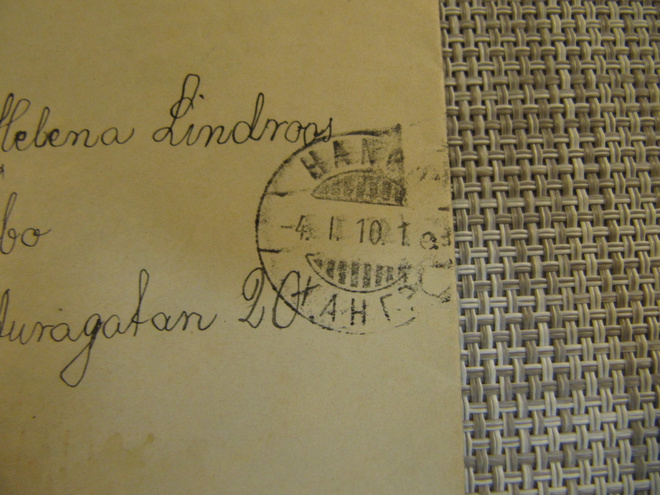 Helena Lindroos
bo
uragatan 20.
HAN
-4. I. 10. 1
AH